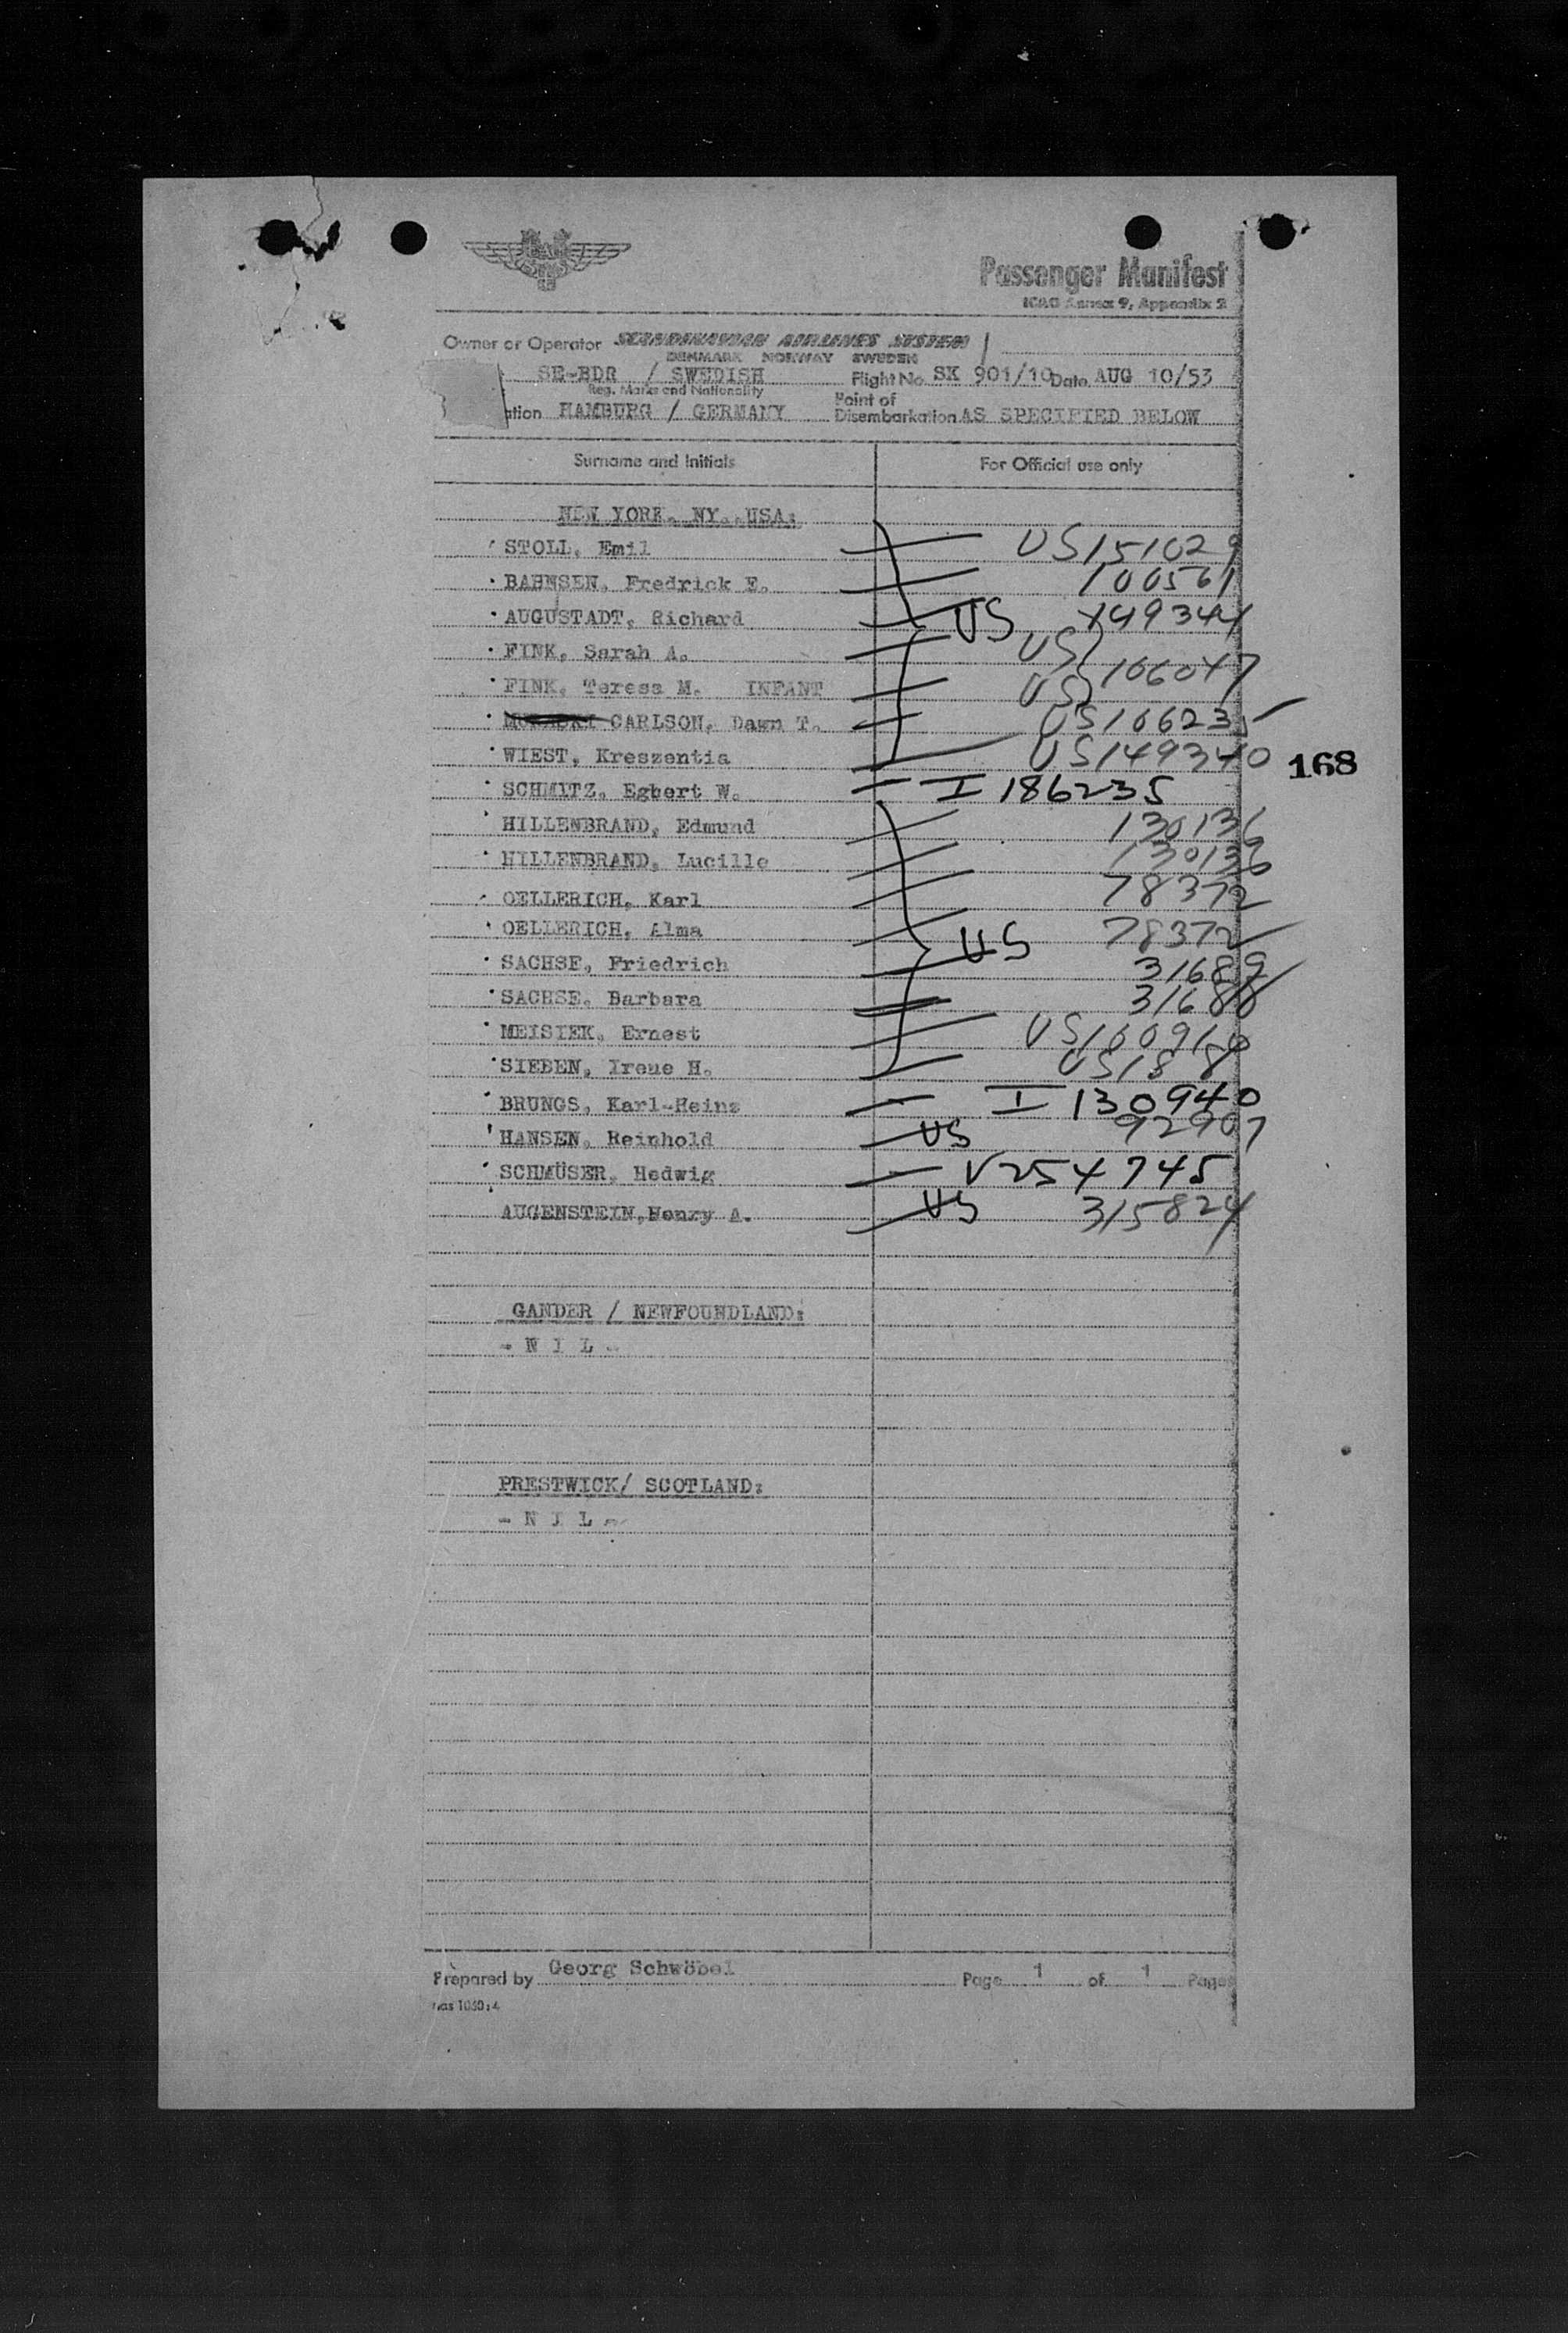 SAS
Passenger Manifest
ICAO Annex 9, Appendix 2
Owner or Operator SCANDINAVIAN AIRLINES SYSTEM
DENMARK NORWAY SWEDEN
SE-BDR / SWEDISH Flight No. SK 901/10 Date AUG 10/53
Reg. Marks and Nationality
ation HAMBURG / GERMANY Point of Disembarkation AS SPECIFIED BELOW
Surname and Initials For Official use only
NEW YORK, NY., USA:
STOLL, Emil US151029
BAHNSEN, Fredrick E. 100561
AUGUSTADT, Richard US 149344
FINK, Sarah A. US
FINK, Teresa M. INFANT US 106047
CARLSON, Dawn T. US106235
WIEST, Kreszentia US149340
168
SCHMITZ, Egbert W. I 186235
HILLENBRAND, Edmund 130136
HILLENBRAND, Lucille 130136
OELLERICH, Karl 78372
OELLERICH, Alma US 78372
SACHSE, Friedrich 31689
SACHSE, Barbara 31688
MEISIEK, Ernest
SIEBEN, Irene H.
BRUNGS, Karl-Heinz I 130940
HANSEN, Reinhold US 92907
SCHMÜSER, Hedwig V254745
AUGENSTEIN, Henry A. US 315824
GANDER / NEWFOUNDLAND:
- N I L -
PRESTWICK/ SCOTLAND:
- N I L -
Prepared by Georg Schwöbel Page 1 of 1 Pages